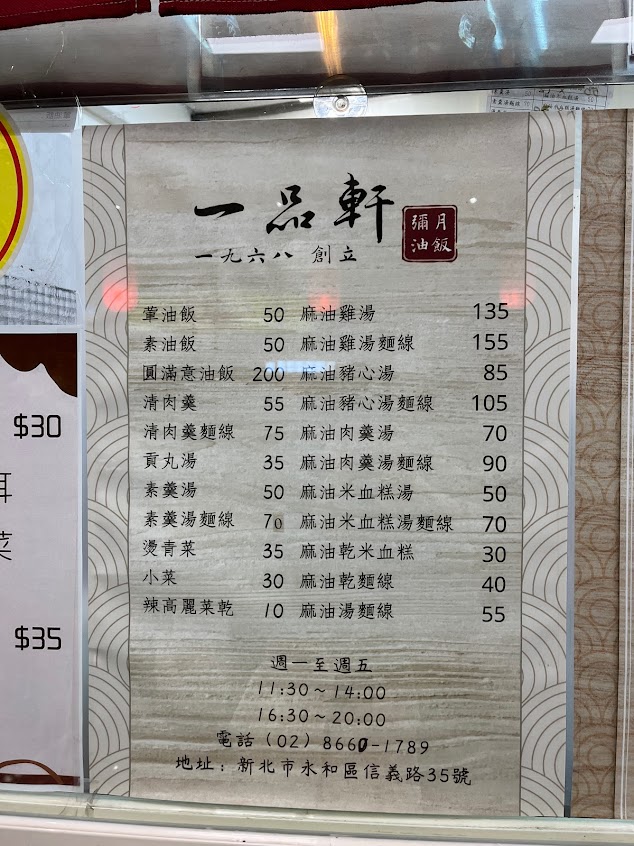 一品軒
彌月
油飯
一九六八 創立
葷油飯 50 麻油雞湯 135
素油飯 50 麻油雞湯麵線 155
圓滿意油飯 200 麻油豬心湯 85
清肉羹 55 麻油豬心湯麵線 105
清肉羹麵線 75 麻油肉羹湯 70
貢丸湯 35 麻油肉羹湯麵線 90
素羹湯 50 麻油米血糕湯 50
素羹湯麵線 70 麻油米血糕湯麵線 70
燙青菜 35 麻油乾米血糕 30
小菜 30 麻油乾麵線 40
辣高麗菜乾 10 麻油湯麵線 55
週一至週五
11:30～14:00
16:30～20:00
電話（02）8660-1789
地址：新北市永和區信義路35號
$30
菜
$35